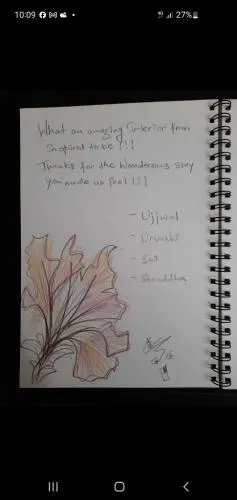 10:09
27%
What an amazing interior from
Inspired to be !!!
Thanks for the Wonderous stay
you made us feel !!!
- Ujjwal
- Urvashi
- Sai
- Shraddha